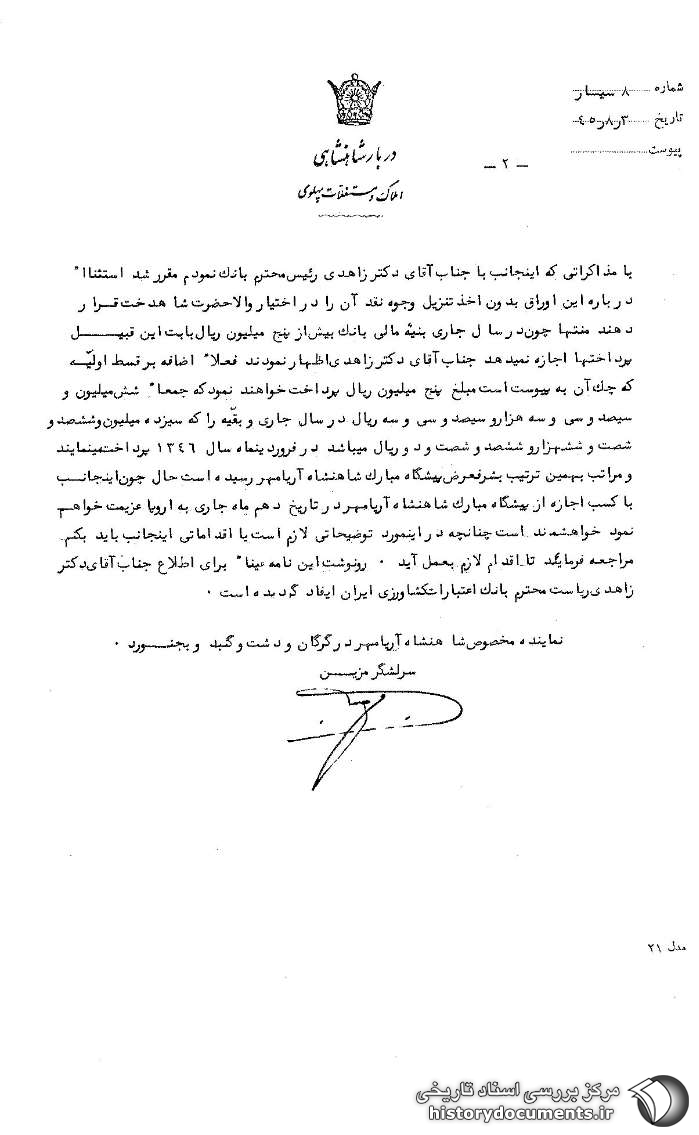 شماره ۸ سیسار
تاریخ ۴۵ر۸ر۳
پیوست
دربار شاهنشاهی
املاک و مستغلات پهلوی
- ۲ -
با مذاکراتی که اینجانب با جناب آقای دکتر زاهدی رئیس محترم بانک نمودم مقرر شد استثناا"
درباره این اوراق بدون اخذ تنزیل وجوه نقد آن را در اختیار والاحضرت شاهدخت قرار
دهند منتها چون در سال جاری بنیه مالی بانک بیش از پنج میلیون ریال بابت این قبیل
پرداختها اجازه نمیدهد جناب آقای دکتر زاهدی اظهار نمودند فعلا" اضافه بر قسط اولیّه
که چک آن به پیوست است مبلغ پنج میلیون ریال پرداخت خواهند نمود که جمعا" شش میلیون و
سیصد و سی و سه هزار و سیصد و سی و سه ریال در سال جاری و بقّیه را که سیزده میلیون و ششصد و
شصت و ششهزار و ششصد و شصت و دو ریال میباشد در فروردینماه سال ۱۳۴۶ پرداخت مینمایند
و مراتب بهمین ترتیب بشرفعرض پیشگاه مبارک شاهنشاه آریامهر رسیده است حال چون اینجانب
با کسب اجازه از پیشگاه مبارک شاهنشاه آریامهر در تاریخ دهم ماه جاری به اروپا عزیمت خواهم
نمود خواهشمند است چنانچه در اینمورد توضیحاتی لازم است یا اقداماتی اینجانب باید بکنم
مراجعه فرمایند تا اقدام لازم بعمل آید ۰ رونوشت این نامه عینا" برای اطلاع جناب آقای دکتر
زاهدی ریاست محترم بانک اعتبارات کشاورزی ایران ایفاد گردیده است ۰
نماینده مخصوص شاهنشاه آریامهر در گرگان و دشت و گنبد و بجنورد ۰
سرلشگر مزین
مدل ۲۱
مرکز بررسی اسناد تاریخی
historydocuments.ir